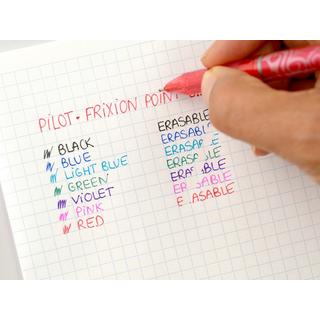 PiLOT · FRiXiON POINT
BLACK
BLUE
LiGHT BLUE
GREEN
ViOLET
PiNK
RED
ERASABLE
ERASABL
ERASABLE
ERASABLE
ERASABLE
ERASABLE
ERASABLE